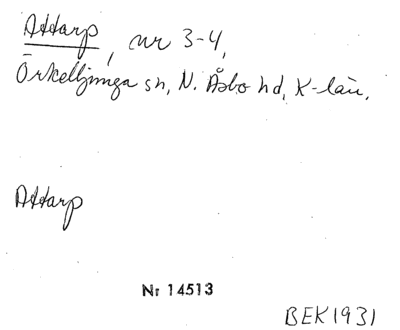 Attarp, nr 3-4,
Örkelljunga sn, N. Åsbo hd, K-län.
Attarp
Nr 14513
BEK1931